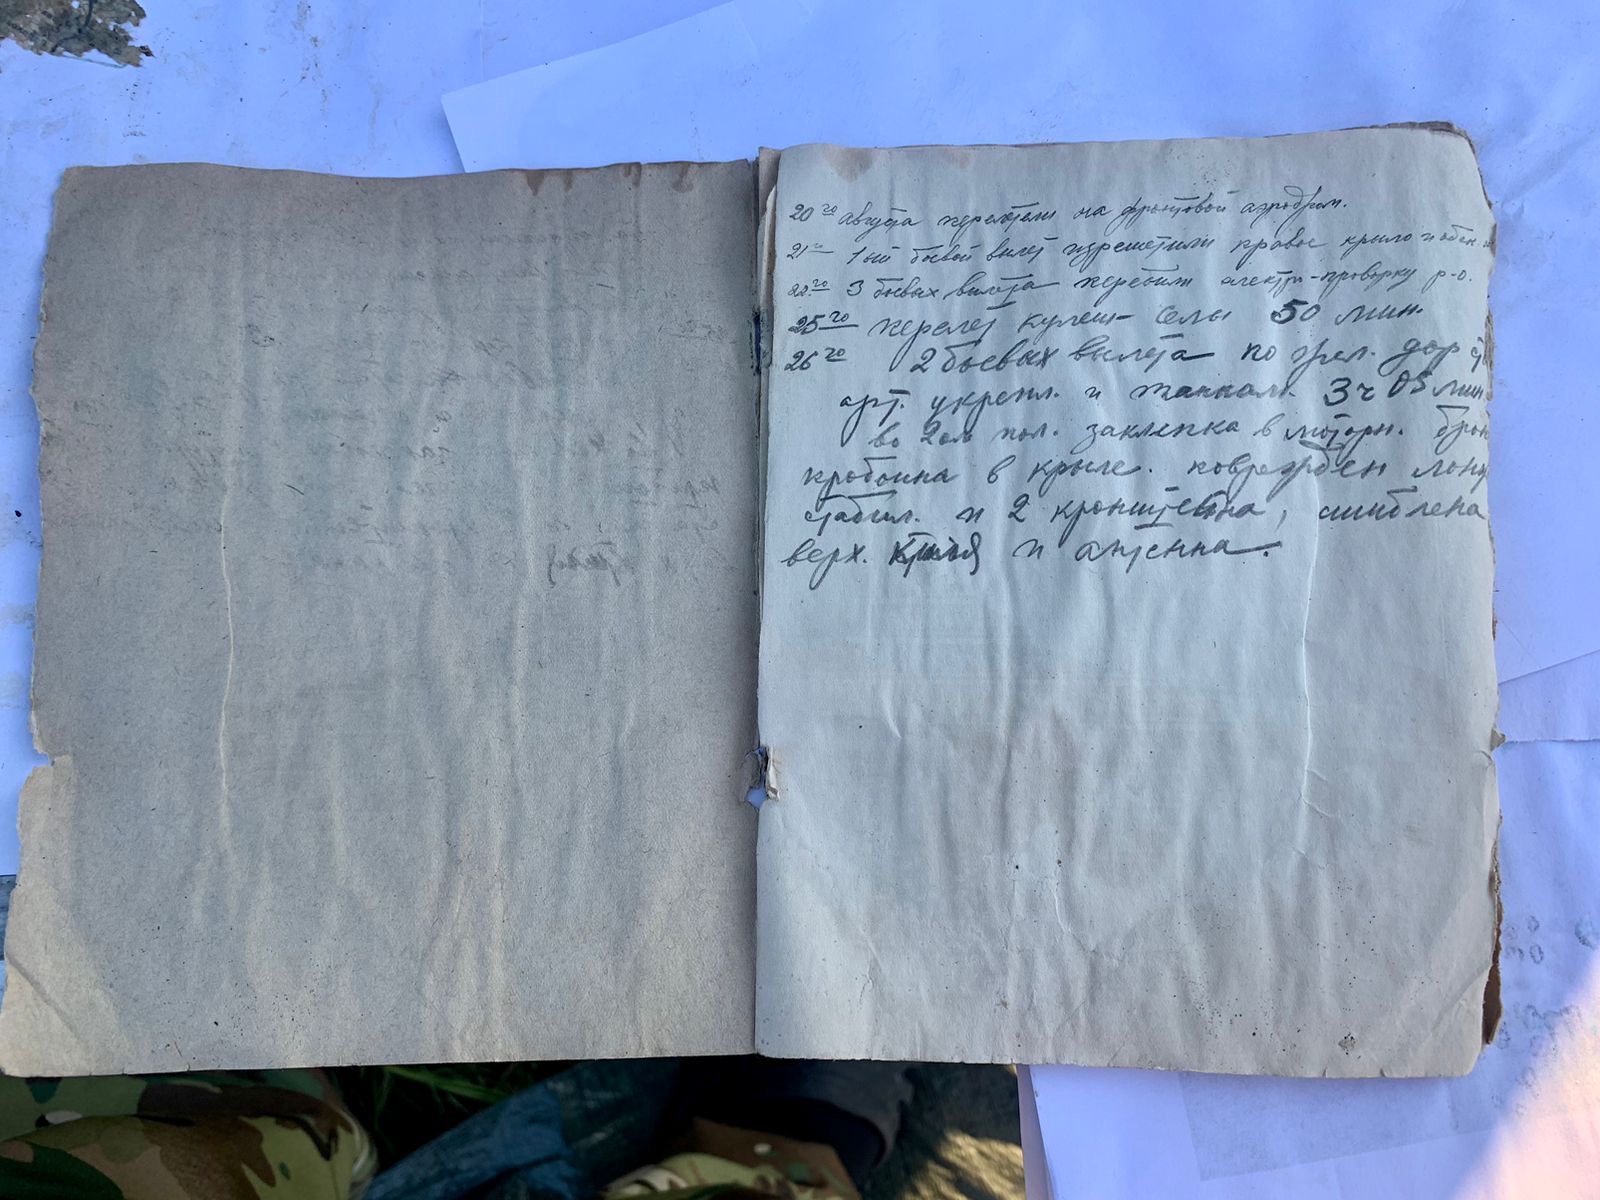 20го августа перелетели на фронтовой аэродром.
21го 1ый боевой вылет изрешетили правое крыло и обек.
22го 3 боевых вылета перебили электро-проворку р-о.
25го перелет Кулеш- Селы 50 мин.
26го 2 боевых вылета по жел. дор
арт. укрепл. и танкам. 3ч 05 мин
во 2ом пол. заклепка в моторн. брон
пробоина в крыле. поврежден лонж
стабил. и 2 кронштейна, сшиблена
верх. киля и антенна.